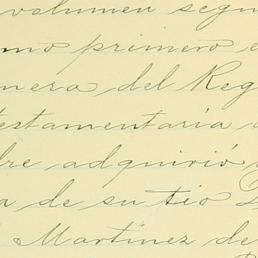 volumen segu
mo primero e
nera del Reg
testamentaria
re adquirió
a de su tio D
Martinez de